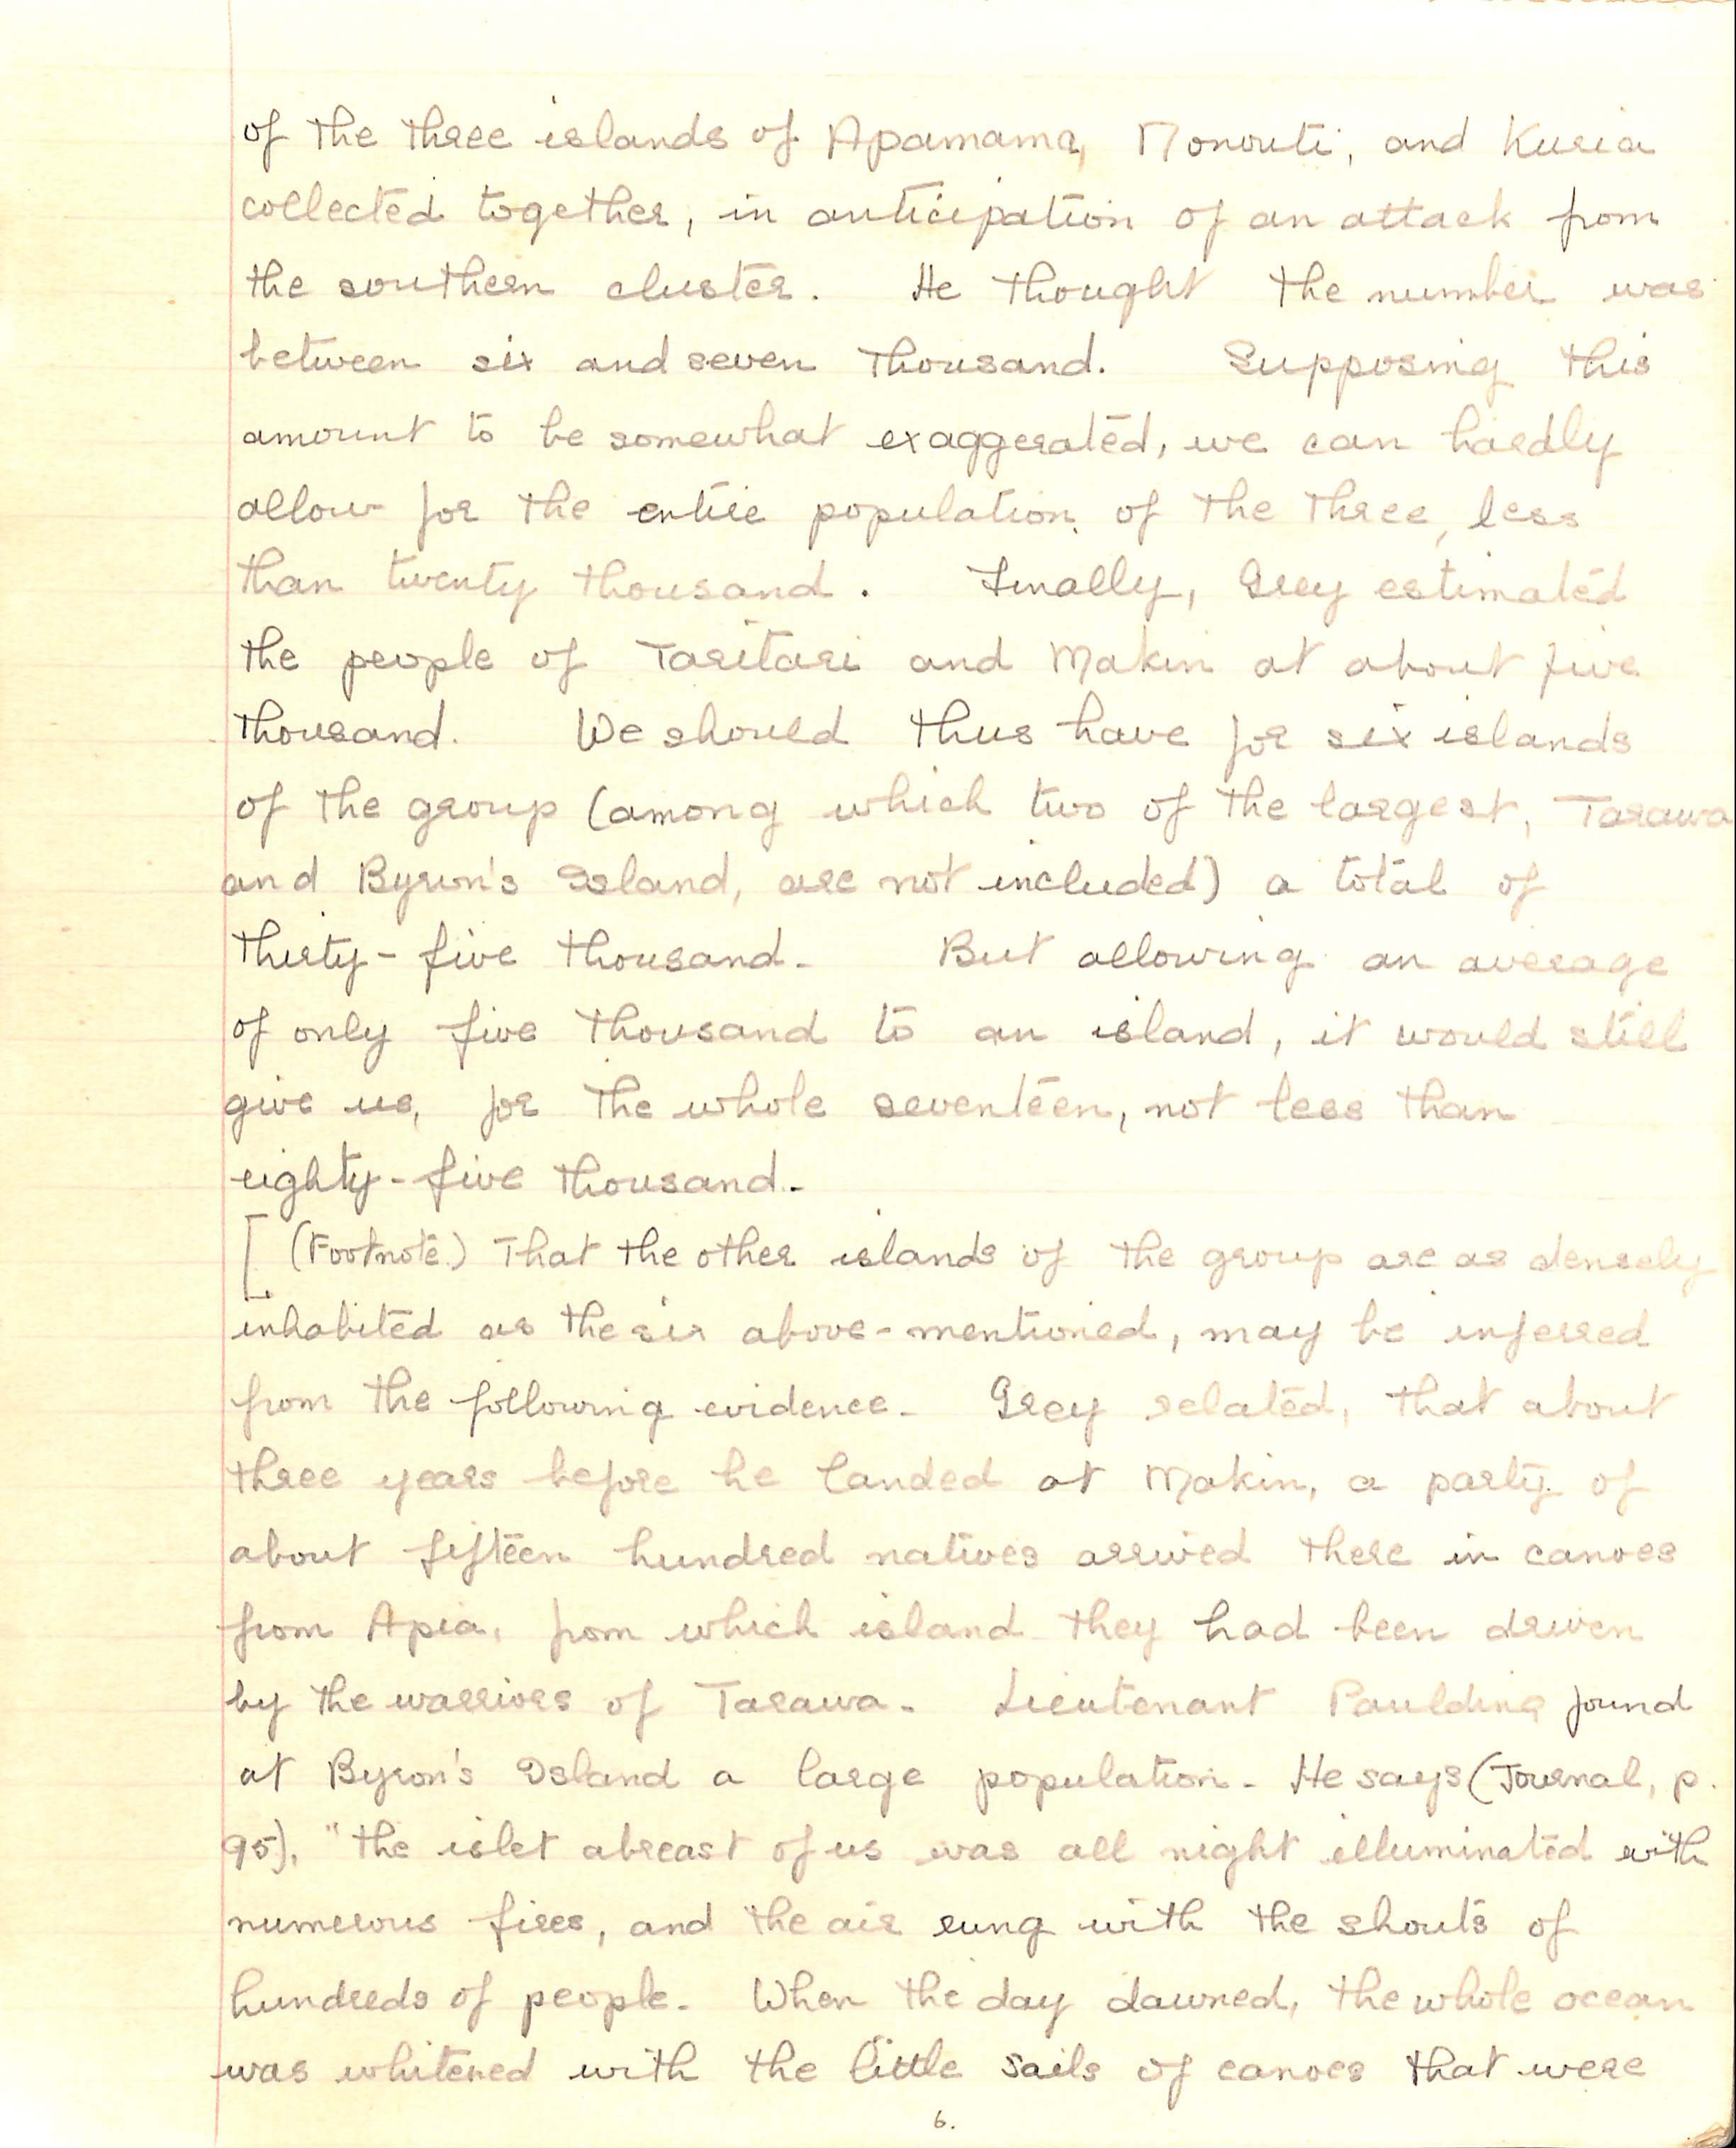 of the three islands of Apamama, Nonouti, and Kuria
collected together, in anticipation of an attack from
the southern cluster. He thought the number was
between six and seven thousand. Supposing this
amount to be somewhat exaggerated, we can hardly
allow for the entire population of the three, less
than twenty thousand. Finally, Grey estimated
the people of Taritari and Makin at about five
thousand. We should thus have for six islands
of the group (among which two of the largest, Tarawa
and Byron's Island, are not included) a total of
thirty-five thousand. But allowing an average
of only five thousand to an island, it would still
give us, for the whole seventeen, not less than
eighty-five thousand.
[ (Footnote.) That the other islands of the group are as densely
inhabited as the six above-mentioned, may be inferred
from the following evidence. Grey related, that about
three years before he landed at Makin, a party of
about fifteen hundred natives arrived there in canoes
from Apia, from which island they had been driven
by the warriors of Tarawa. Lieutenant Paulding found
at Byron's Island a large population. He says (Journal, p.
95), "the islet abreast of us was all night illuminated with
numerous fires, and the air rung with the shouts of
hundreds of people. When the day dawned, the whole ocean
was whitened with the little sails of canoes that were
6.